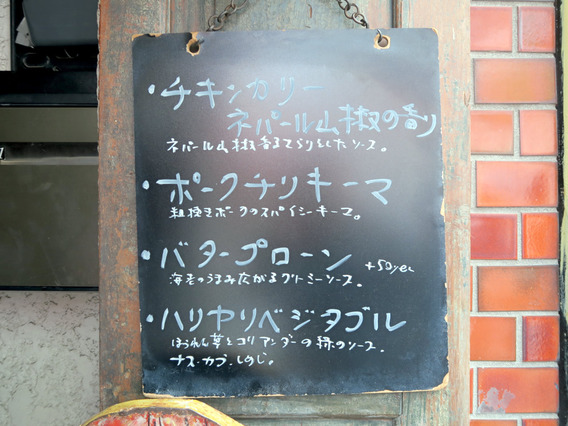 ・チキンカリー
ネパール山椒の香り
ネパール山椒香るさらりとしたソース。
・ポークチリキーマ
粗挽きポークのスパイシーキーマ。
・バタープローン +50yen
海老のうまみ広がるクリーミーソース。
・ハリヤリベジタブル
ほうれん草とコリアンダーの緑のソース。
ナス・カブ・しめじ。